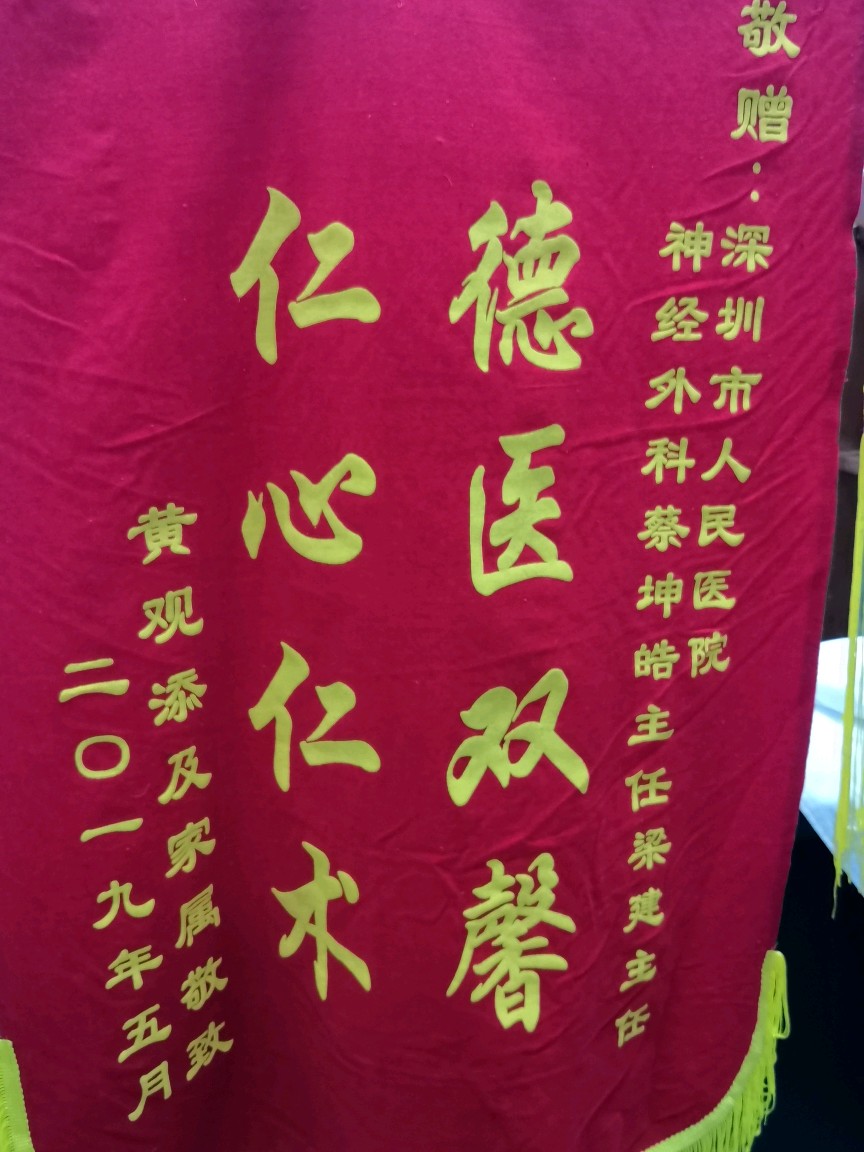 敬赠：深圳市人民医院
神经外科蔡坤皓主任梁建主任
德医双馨
仁心仁术
黄观添及家属敬致
二〇一九年五月